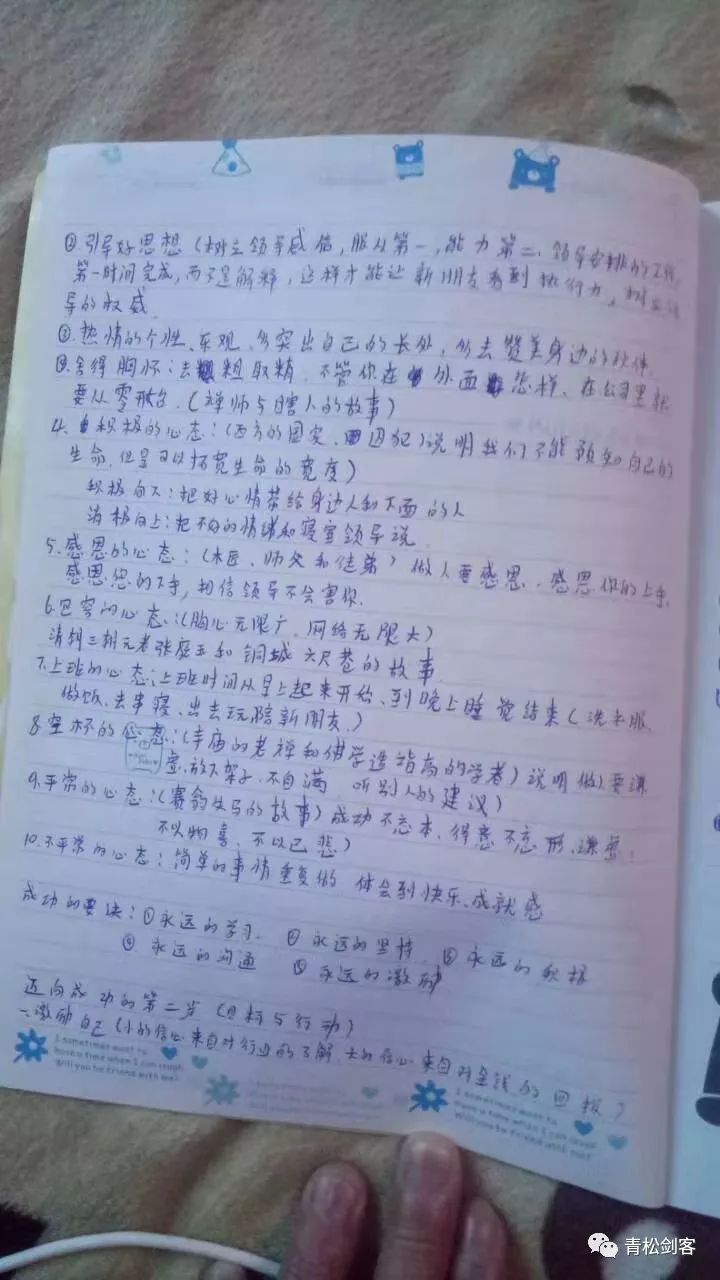 ②引导好思想（树立领导威信，服从第一，能力第二，领导安排的工作
第一时间完成，而不是解释，这样才能让新朋友看到执行力，树立领
导的权威.
②热情的个性、乐观 多突出自己的长处，多去赞美身边的伙伴
③舍得胸怀：去粗取精 不管你在外面怎样、在公司里都
要从零开始.（禅师与瞎人的故事）
4.积极的心态：（西方的国家 囚犯）说明我们不能预知自己的
生命，但是可以拓宽生命的宽度）
积极向下：把好心情带给身边人和下面的人
消极向上：把不好的情绪和寝室领导说.
5.感恩的心态：（木匠、师父和徒弟）做人要感恩、感恩你的上手，
感恩您的下手，相信领导不会害你.
6.包容的心态：（胸心无限广 网络无限大）
清朝三朝元老张庭玉和铜城六尺巷的故事
7.上班的心态：上班时间从早上起来开始、到晚上睡觉结束（洗衣服、
做饭、去串寝、出去玩陪新朋友.）
8.空杯的心态：（寺庙的老禅和佛学造指高的学者）说明做人要谦
虚、放下架子、不自满 听别人的建议）
9.平常的心态：（赛翁失马的故事）成功不忘本、得意不忘形、谦虚.
不以物喜、不以己悲）
10.不平常的心态：简单的事情重复做 体会到快乐、成就感
成功的要诀：①永远的学习 ②永远的坚持 ③永远的积极
④永远的沟通 ⑤永远的激励
迈向成功的第二步（目标与行动）
一.激励自己（小的信心来自对行业的了解、大的信心来自对金钱的回报）
I sometimes want to
have a time when I can laugh
Will you be friend with me?
I sometimes want to
have a time when I can laugh
Will you be friend with me?
青松剑客